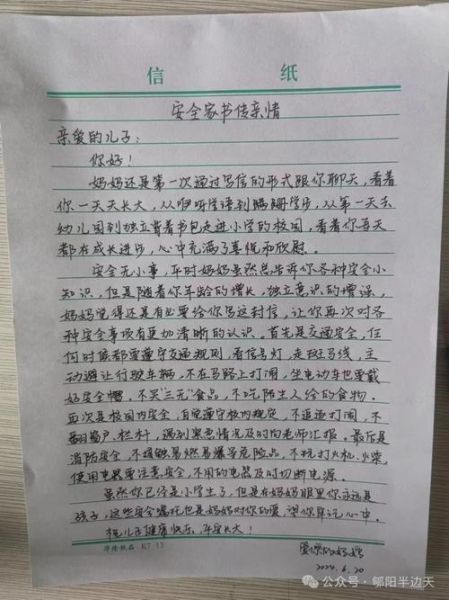 信 纸
安全家书传亲情
亲爱的儿子：
你好！
妈妈还是第一次通过写信的形式跟你聊天，看着
你一天天长大，从咿呀学语到蹒跚学步，从第一天去
幼儿园到独立背着书包走进小学的校园，看着你每天
都在成长进步，心中充满了喜悦和欣慰。
安全无小事，平时妈妈虽然总告诉你各种安全小
知识，但是随着你年龄的增长，独立意识的增强，
妈妈觉得还是有必要给你写这封信，让你再次对各
种安全事项有更加清晰的认识。首先是交通安全，任
何时候都要遵守交通规则，看信号灯，走斑马线，主
动避让行驶车辆，不在马路上打闹，坐电动车也要戴
好安全帽，不买“三元”食品，不吃陌生人给的食物。
再次是校园内安全，自觉遵守校内规定，不追逐打闹，不
翻窗户、栏杆，遇到紧急情况及时向老师汇报。最后是
消防安全，不接触易燃易爆等危险品，不玩打火机、火柴，
使用电器要注意安全，不用的电器及时切断电源。
虽然你已经是小学生了，但是在妈妈眼里你永远是
孩子，这些安全嘱托也是妈妈对你的爱，望你牢记心中。
祝儿子健康快乐，平安长大！
爱你的妈妈
2024.6.20
公众号·郇阳半边天